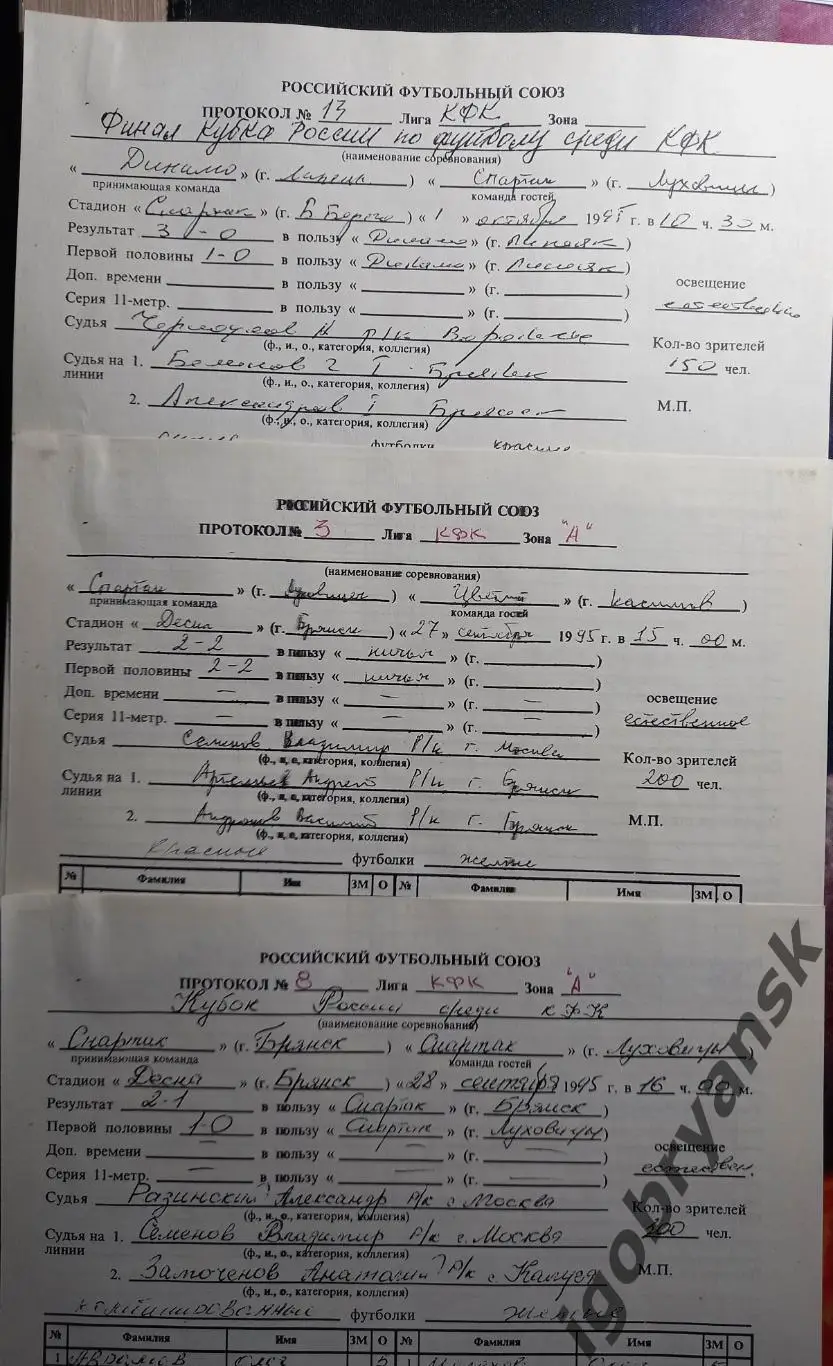 РОССИЙСКИЙ ФУТБОЛЬНЫЙ СОЮЗ
ПРОТОКОЛ № 13 Лига КФК Зона
Финал Кубка России по футболу среди КФК
(наименование соревнования)
« Динамо » (г. ) « Спартак » (г. Луховицы )
принимающая команда команда гостей
Стадион « Спартак » (г. Б Берега ) « 1 » октября 1995 г. в 10 ч. 30 м.
Результат 3-0 в пользу « Динамо » (г. )
Первой половины 1-0 в пользу « Динамо » (г. )
Доп. времени в пользу « » (г. ) освещение
Серия 11-метр. в пользу « » (г. ) естественно
Судья р/к
(ф., и., о., категория, коллегия) Кол-во зрителей
Судья на 1. I 150 чел.
линии (ф., и., о., категория, коллегия)
2. Александров I М.П.
(ф., и., о., категория, коллегия)
футболки красно
РОССИЙСКИЙ ФУТБОЛЬНЫЙ СОЮЗ
ПРОТОКОЛ № 3 Лига КФК Зона "А"
(наименование соревнования)
« Спартак » (г. Луховицы ) « Цветной » (г. Касимов )
принимающая команда команда гостей
Стадион « Десна » (г. Брянск ) « 27 » сентября 1995 г. в 15 ч. 00 м.
Результат 2-2 в пользу « ничья » (г. )
Первой половины 2-2 в пользу « ничья » (г. )
Доп. времени — в пользу « — » (г. — ) освещение
Серия 11-метр. — в пользу « — » (г. — ) естественное
Судья Семенов Владимир Р/к г. Москва
(ф., и., о., категория, коллегия) Кол-во зрителей
Судья на 1. Андрей Р/к г. Брянск 200 чел.
линии (ф., и., о., категория, коллегия)
2. Василий Р/к г. Брянск М.П.
(ф., и., о., категория, коллегия)
красные футболки желтые
№ Фамилия Имя ЗМ О № Фамилия Имя ЗМ О
РОССИЙСКИЙ ФУТБОЛЬНЫЙ СОЮЗ
ПРОТОКОЛ № 8 Лига КФК Зона "А"
Кубок России среди КФК
(наименование соревнования)
« Спартак » (г. Брянск ) « Спартак » (г. Луховицы )
принимающая команда команда гостей
Стадион « Десна » (г. Брянск ) « 28 » сентября 1995 г. в 16 ч. 00 м.
Результат 2-1 в пользу « Спартак » (г. Брянск )
Первой половины 1-0 в пользу « Спартак » (г. Луховицы )
Доп. времени — в пользу « — » (г. — ) освещение
Серия 11-метр. — в пользу « — » (г. — ) естествен.
Судья Разинский Александр Р/к г. Москва
(ф., и., о., категория, коллегия) Кол-во зрителей
Судья на 1. Семенов Владимир Р/к г. Москва 300 чел.
линии (ф., и., о., категория, коллегия)
2. Замоченов Анатолий Р/к г. Калуга М.П.
(ф., и., о., категория, коллегия)
комбинированные футболки желтые
№ Фамилия Имя ЗМ О № Фамилия Имя ЗМ О
igobryansk